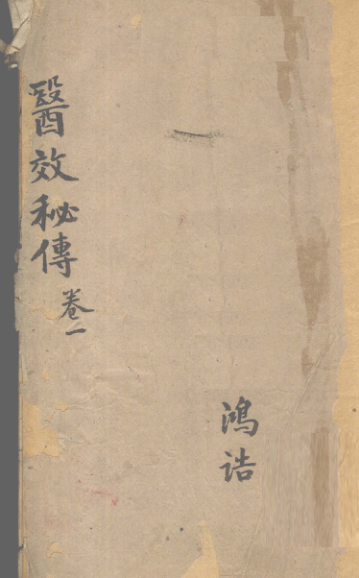 醫效秘傳卷一
鴻誥